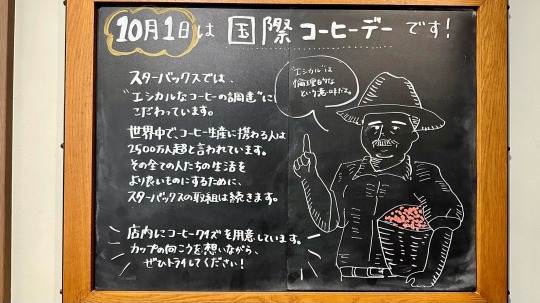 10月1日は 国際コーヒーデーです!
スターバックスでは、
"エシカルなコーヒーの調達"に
こだわっています。
世界中で、コーヒー生産に携わる人は
2500万人超と言われています。
その全ての人たちの生活を
より良いものにするために、
スターバックスの取組は続きます。
店内にコーヒークイズを用意しています。
カップの向こうを想いながら、
ぜひトライしてください!
"エシカル"は
倫理的な
という意味だよ。